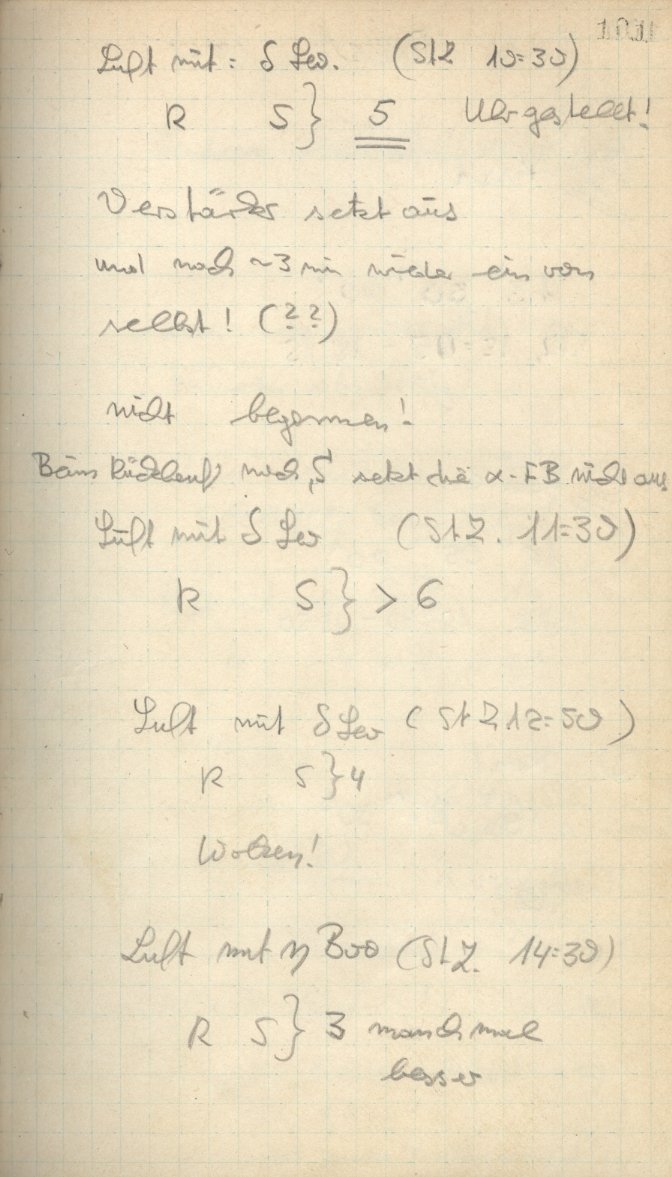 Luft mit: δ Leo. (StZ 10=30)
R S} 5 Uhr gestellt!
Verstärker setzt aus
und nach ~3 min wieder ein von
selbst! (??)
nicht begonnen!
Beim Rücklauf nach S setzt die α-FB nicht aus
Luft mit δ Leo (StZ. 11=30)
R S} > 6
Luft mit δ Leo (StZ 12=50)
R S} 4
Wolken!
Luft mit η Boo (StZ. 14=30)
R S} 3 manchmal
besser